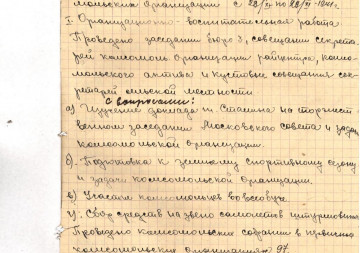 мольских организации с 22/XI по 28/XI-1941г.
I Организационно-воспитательная работа
Проведено заседании бюро 3, совещании секрета-
рей комсомол организации райцентра, комсо-
мольского актива и кустовые совещания сек-
ретарей сельской местности
с вопросами:
а) Изучение доклада т. Сталина на торжест-
венном заседании Московского совета и задачи
комсомольской организации.
б). Подготовка к зимнему спортивному сезону
и задачи комсомольской организации.
в) Участие комсомольцев во всеобуче.
г). Сбор средств на звено самолетов штурмовиков
Проведено комсомольских собрании в первичных
комсомольских организациях 97.